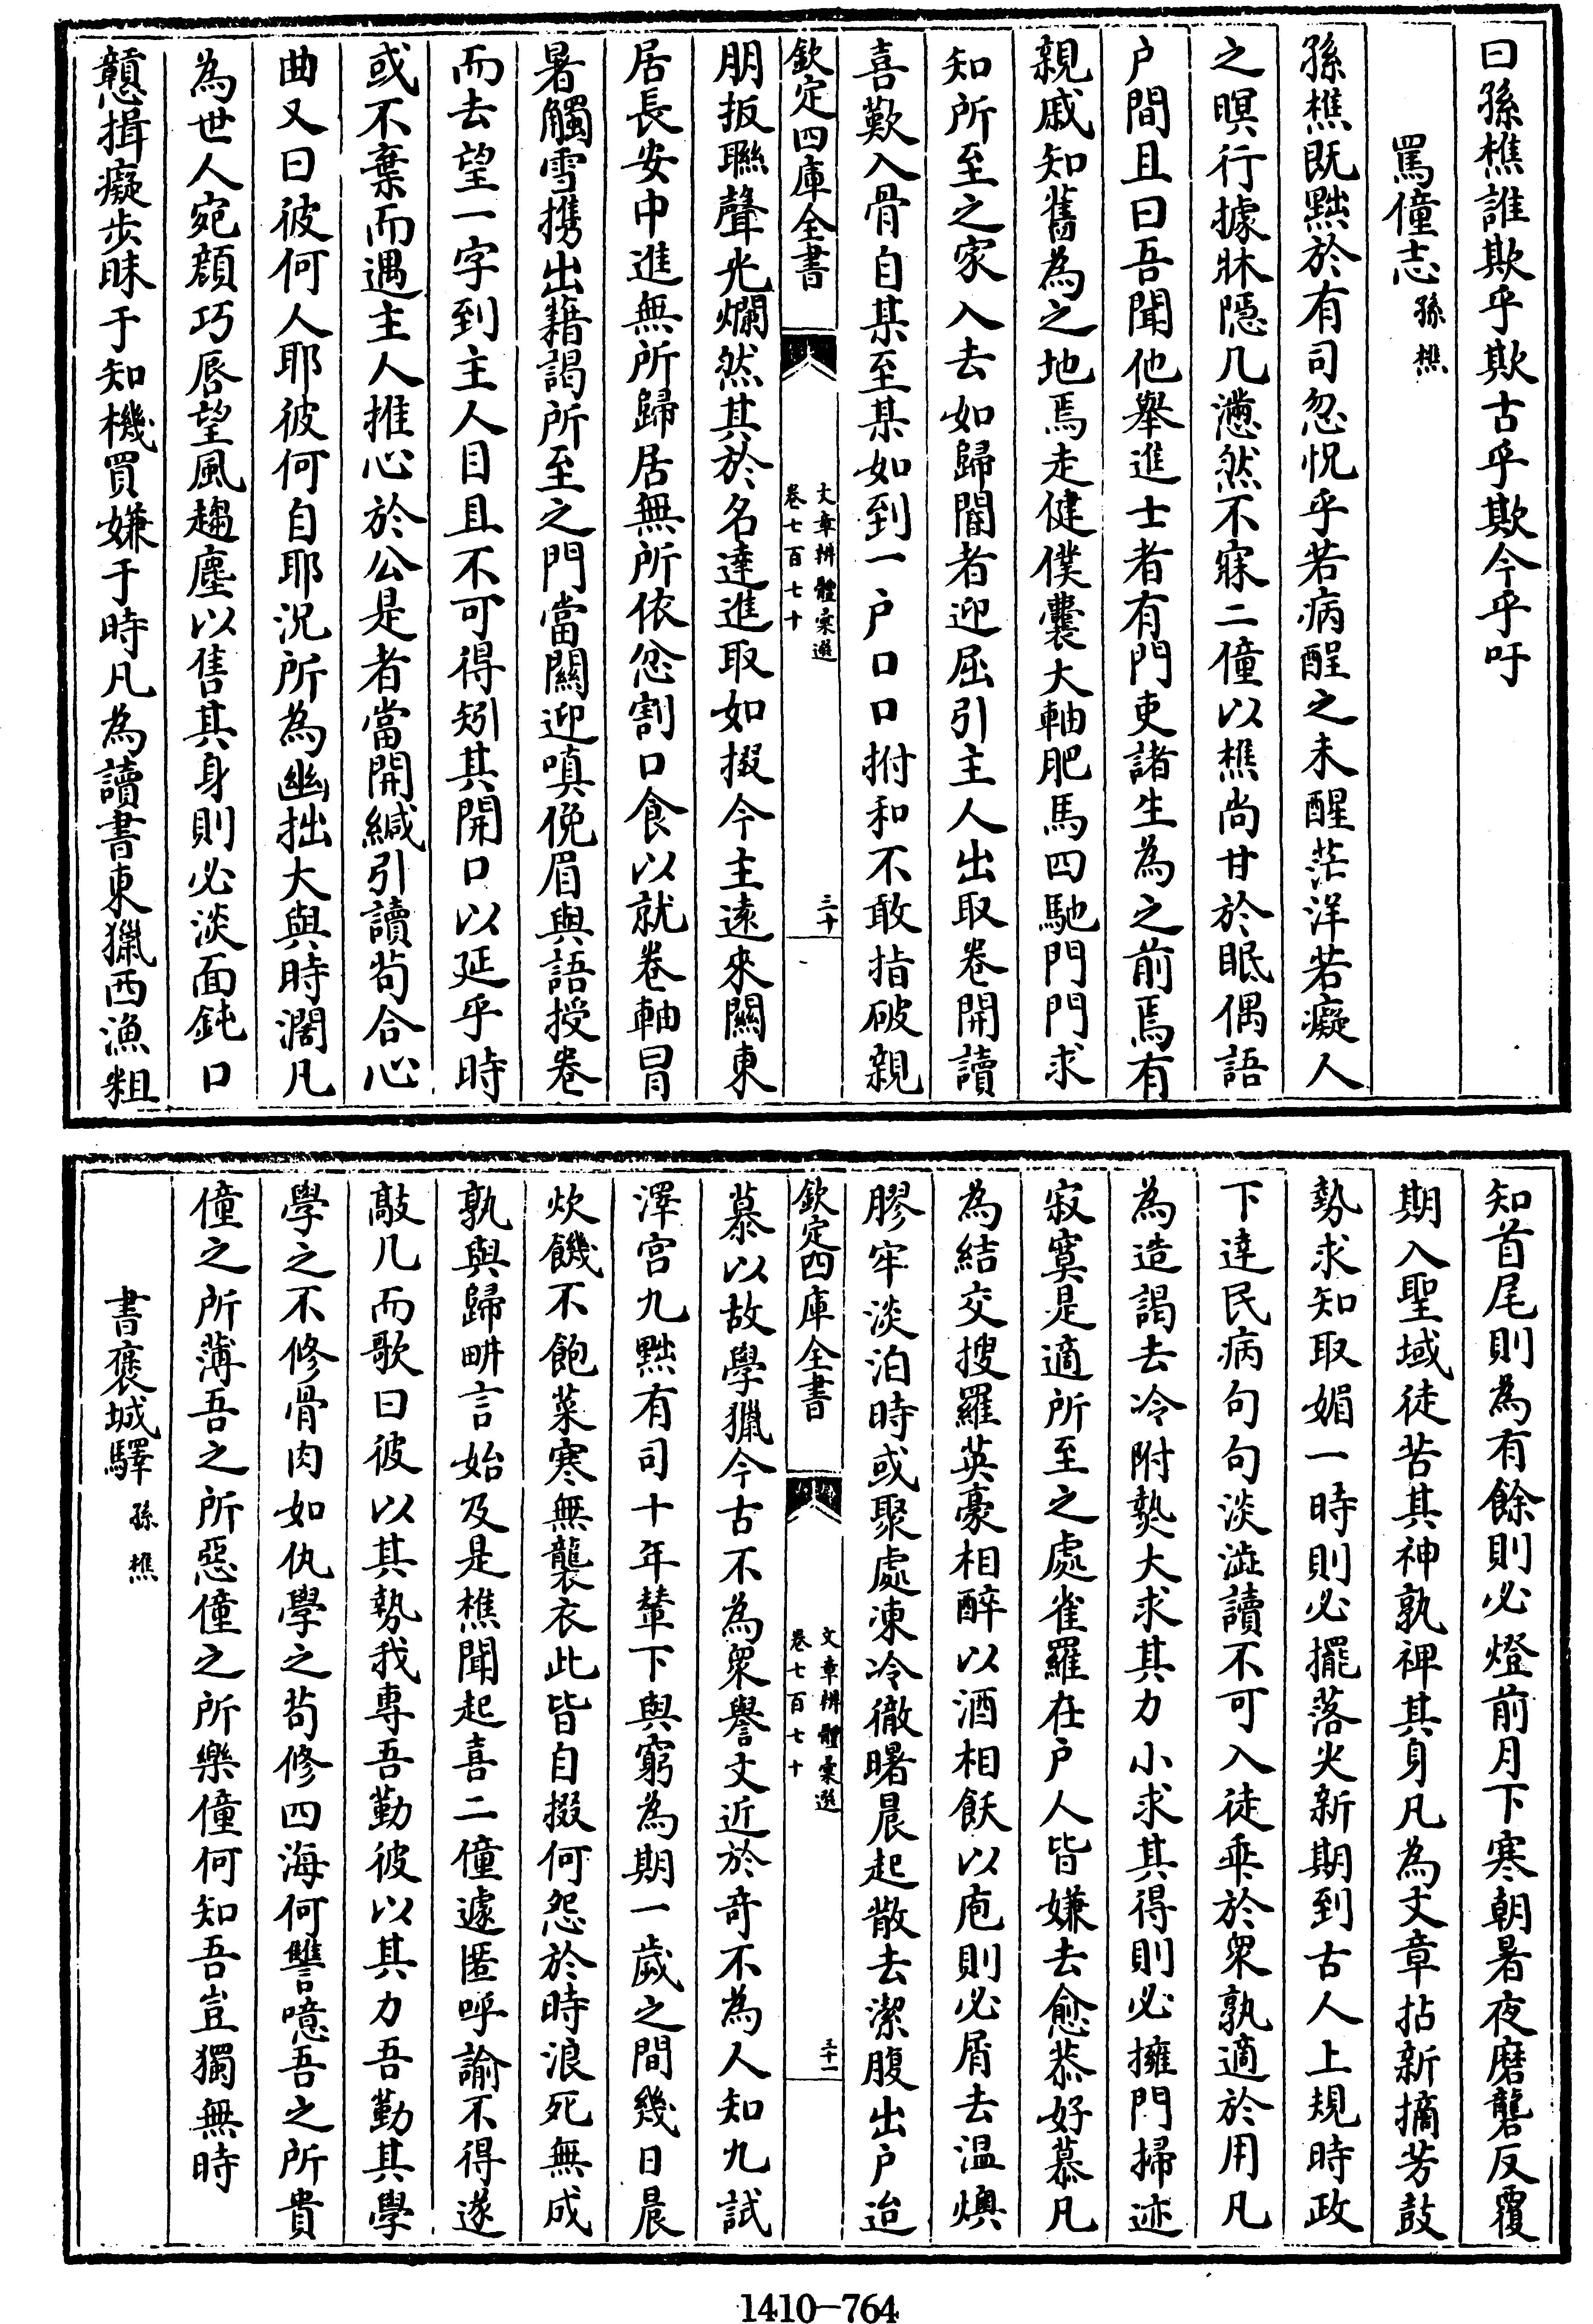 曰孫樵誰欺乎欺古乎欺今乎吁
罵僮志孫樵
孫樵既黜於有司忽怳乎若病酲之未醒茫洋若癡人
之暝行據牀隱几懣然不寐二僮以樵尚甘於眠偶語
户間且曰吾聞他舉進士者有門吏諸生為之前焉有
親戚知舊為之地焉走健僕囊大軸肥馬四馳門門求
知所至之家入去如歸閽者迎屈引主人出取卷開讀
喜歎入骨自某至某如到一户口口拊和不敢指破親
欽定四庫全書
文章辨體彙選
卷七百七十
三十
朋扳聯聲光爛然其於名達進取如掇今主遠來關東
居長安中進無所歸居無所依忿割口食以就卷軸冒
暑觸雪攜出籍謁所至之門當關迎嗔俛眉與語授卷
而去望一字到主人目且不可得矧其開口以延乎時
或不棄而遇主人推心於公是者當開緘引讀苟合心
曲又曰彼何人耶彼何自耶況所為幽拙大與時濶凡
為世人宛顏巧唇望風趨塵以售其身則必淡面鈍口
戇揖癡步昧于知機買嫌于時凡為讀書東獵西漁粗
知首尾則為有餘則必燈前月下寒朝暑夜磨礲反覆
期入聖域徒苦其神孰裨其身凡為文章拈新摘芳鼓
勢求知取媚一時則必擺落尖新期到古人上規時政
下達民病句句淡澁讀不可入徒乖於衆孰適於用凡
為造謁去冷附熱大求其力小求其得則必擁門掃迹
寂寞是適所至之處雀羅在户人皆嫌去愈恭好慕凡
為結交搜羅英豪相醉以酒相飫以庖則必屑去温燠
膠牢淡泊時或聚處凍冷徹曙晨起散去潔腹出户迨
欽定四庫全書
文章辨體彙選
卷七百七十
三十一
慕以故學獵今古不為衆譽文近於奇不為人知九試
澤宫九黜有司十年輦下與窮為期一歲之間幾日晨
炊饑不飽菜寒無襲衣此皆自掇何怨於時浪死無成
孰與歸畊言始及是樵聞起喜二僮遽匿呼諭不得遂
敲几而歌曰彼以其勢我專吾勤彼以其力吾勤其學
學之不修骨肉如仇學之苟修四海何讐噫吾之所貴
僮之所薄吾之所惡僮之所樂僮何知吾豈獨無時
書褒城驛孫樵
1410—764